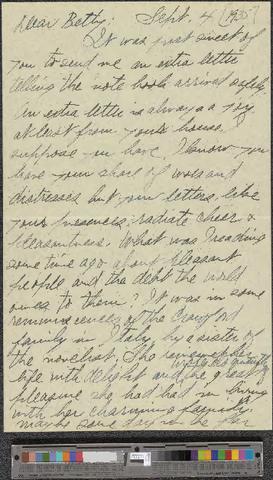 Dear Betty: Sept. 4 [1935]
It was just sweet of
you to send me an extra letter
telling the note book arrived safely.
An extra letter is always a joy
at least from your house.
suppose you have. I know you
have your share of woes and
distresses but your letters, like
your presences, radiate cheer &
pleasantness. What was I reading
some time ago about pleasant
people and the debt the world
owes to them? It was in some
reminiscences of the Crawford
family in Italy, by a sister of
the novelist. She remembers
life with delight and the great
pleasure she had had in living
with her charming family
maybe some day in the far